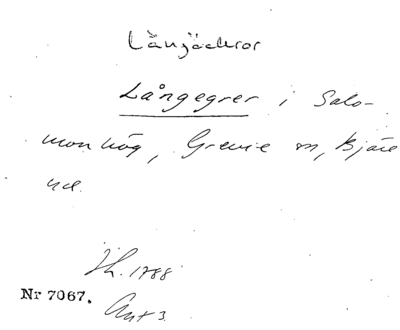 Långåckror
Långegrer i Salo-
monhög, Grevie sn, Bjäre
hd.
Jh. 1788
Nr 7067.
Akt 3.